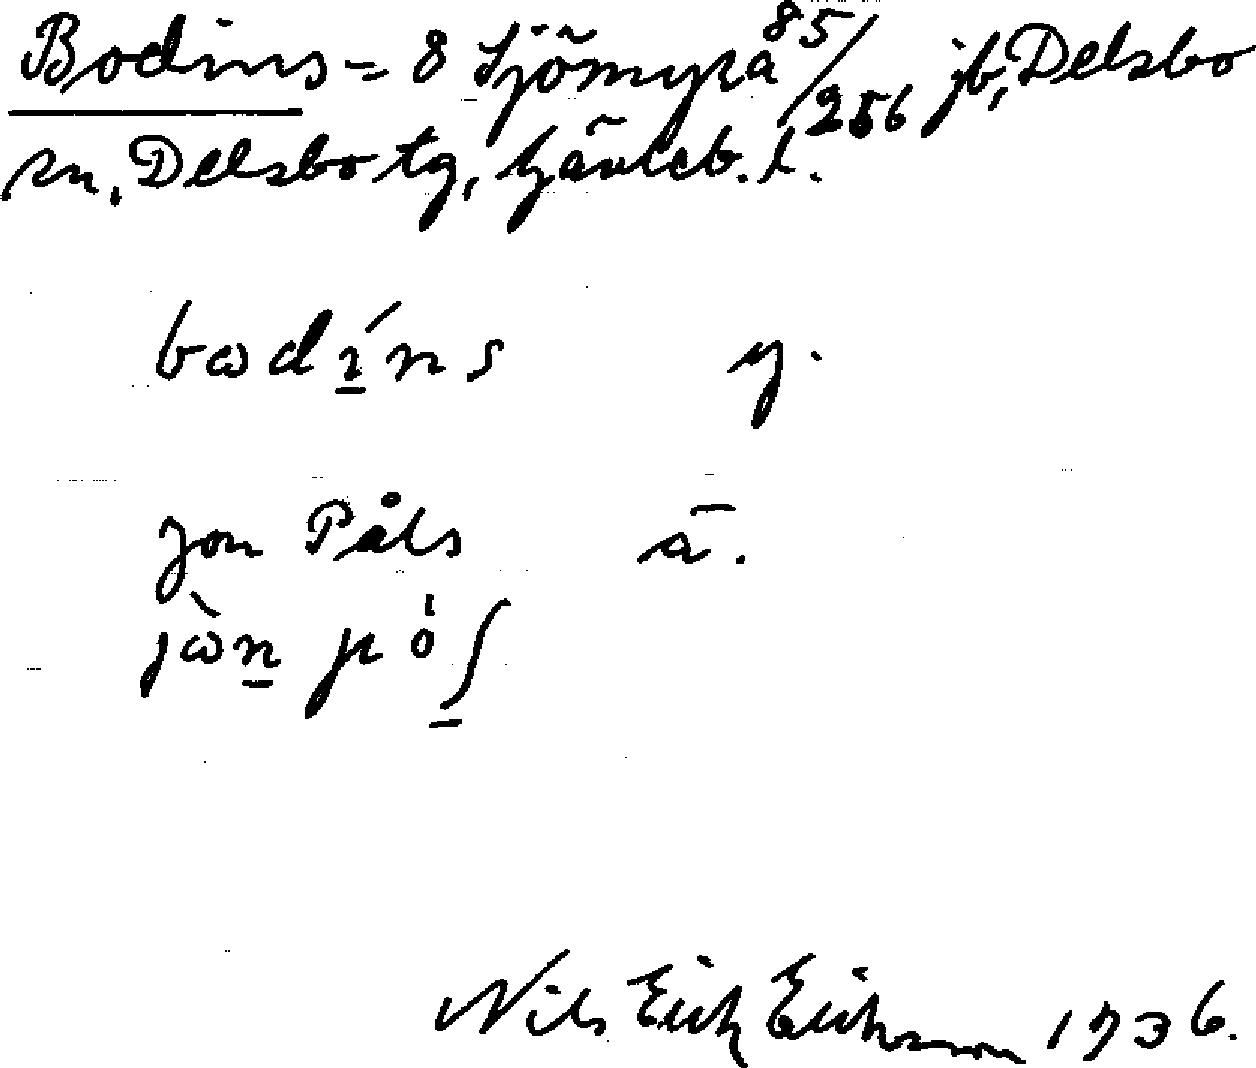 Bodins = 8 Sjömyra 85/256 jb, Delsbo
sn, Delsbo tg, Gävleb. l.
bωdíns y.
Jon Påls ä.
jὼn pó ʃ
Nils Erik Eriksson 1936.